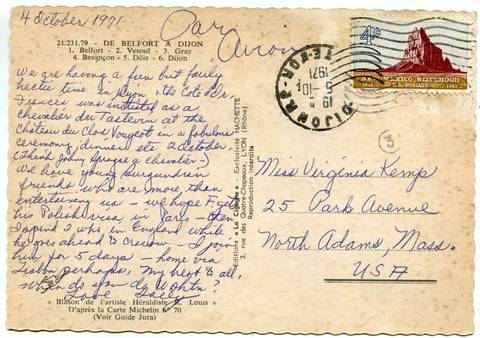 4 October 1971
Par
Avion
21.231.79 - DE BELFORT A DIJON
1. Belfort - 2. Vesoul - 3. Gray
4. Besançon - 5. Dôle - 6. Dijon
We are having a fun but fairly
hectic time in Lyon & the Cote d'Or.
Frances was instituted as a
chevalier du Tastevin at the
Chateau du Clos Vougeot in a fabulous
ceremony, dinner etc 2 October
(Think a chevalier)
We have young burgundian
friends who are more than
entertaining us - we hope F gets
his Polish visa in Paris - then
I spend 2 wks in England while
he goes ahead to Cracow - I join
him for 5 days - home via
Lisbon perhaps. My best to all,
When do you do
Love
« Blason de l'artiste Héraldiste R. Louis »
D'après la Carte Michelin n° 70
(Voir Guide Jura)
Editions « La Cigogne » - Exclusivité HACHETTE
3, rue des Quatre-Chapeaux, LYON (Rhône)
Reproduction interdite
DIJON R.P.
19 H
5 - 10
1971
CÔTE-D'OR
4¢
NEW MEXICO STATEHOOD
1912 U.S. POSTAGE 1962
3
Miss Virginia Kemp
25 Park Avenue
North Adams, Mass.
USA